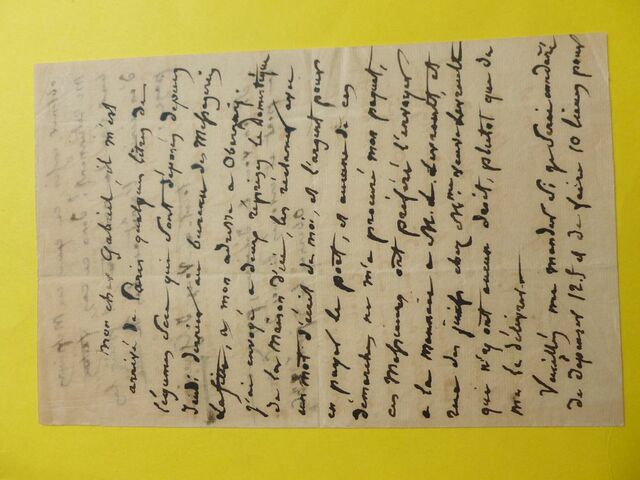 mon cher Gabriel il m'est
arrivé de Paris quelques litres de
légumes secs qui sont déposés depuis
Jeudi dernier au bureau des Messageries
Lafitte, a mon adresse a
j'ai envoyé a deux reprises le domestique
de la maison d'ici, les reclamer avec
un mot d'écrit de moi, et l'argent pour
en payer le port, et aucune de ces
demarches ne m'a procuré mon paquet,
ces Messieurs ont préféré l'envoyer
a la monnaie a M. L. et
rue des juifs chez Mme veuve
qui n'y ont aucun droit, plutot que de
me le délivrer.
Veuillez me mander si je serai condamné
de dépenser 12.f et de faire 10 lieues pour